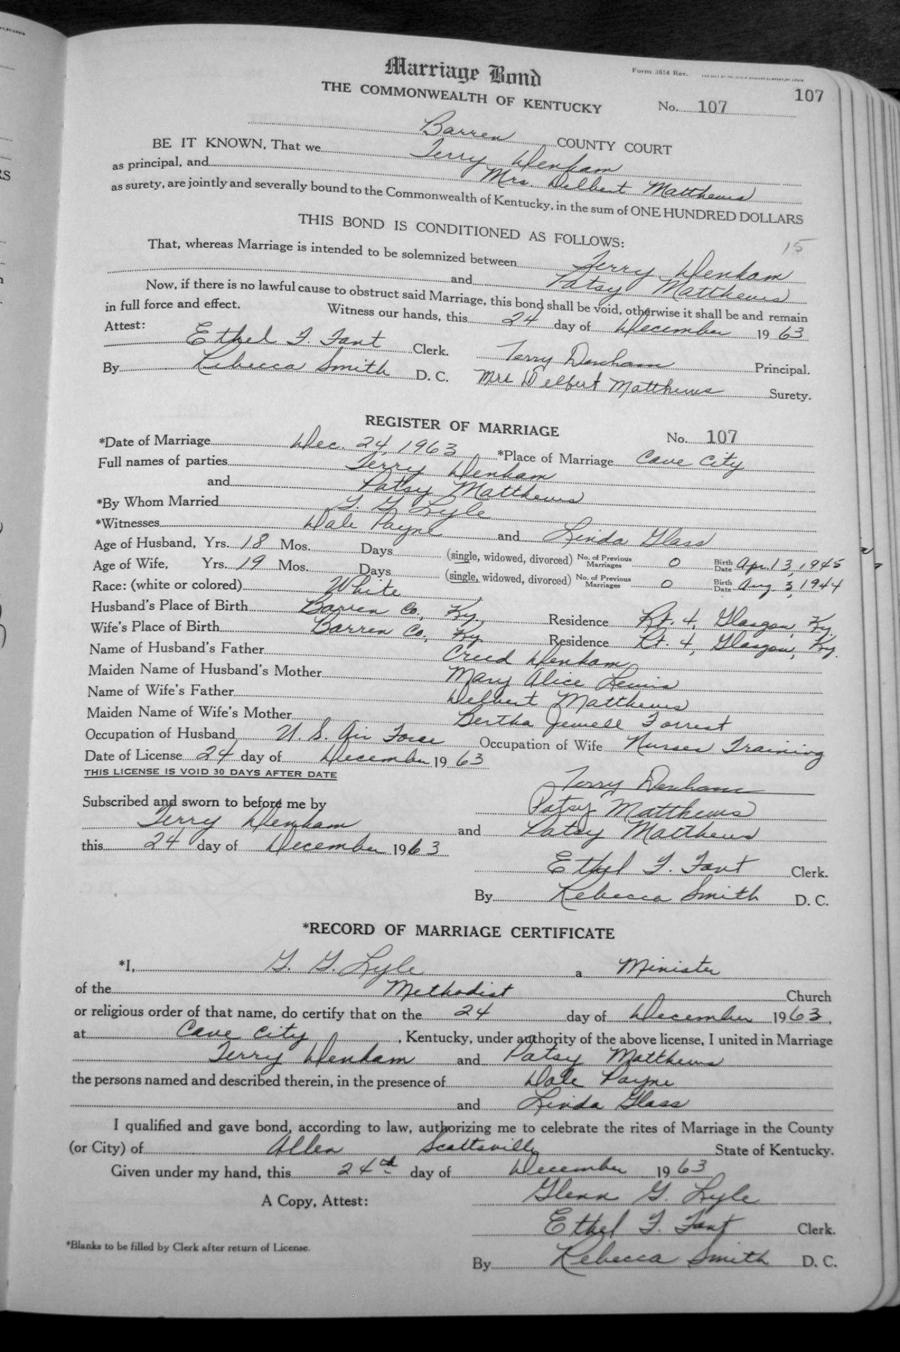 Marriage Bond
Form 3614 Rev.
107
THE COMMONWEALTH OF KENTUCKY No. 107
Barren COUNTY COURT
BE IT KNOWN, That we Terry Denham
as principal, and Mrs. Delbert Matthews
as surety, are jointly and severally bound to the Commonwealth of Kentucky, in the sum of ONE HUNDRED DOLLARS
THIS BOND IS CONDITIONED AS FOLLOWS: 15
That, whereas Marriage is intended to be solemnized between Terry Denham
and Patsy Matthews
Now, if there is no lawful cause to obstruct said Marriage, this bond shall be void, otherwise it shall be and remain
in full force and effect. Witness our hands, this 24 day of December 1963
Attest:
Ethel F. Fant Clerk. Terry Denham Principal.
By Rebecca Smith D. C. Mrs Delbert Matthews Surety.
REGISTER OF MARRIAGE No. 107
*Date of Marriage Dec. 24, 1963 *Place of Marriage Cave City
Full names of parties Terry Denham
and Patsy Matthews
*By Whom Married G. G. Lyle
*Witnesses Dale Payne and Linda Glass
Age of Husband, Yrs. 18 Mos. Days (single, widowed, divorced) No. of Previous Marriages 0 Birth Date Apr. 13, 1945
Age of Wife, Yrs. 19 Mos. Days (single, widowed, divorced) No. of Previous Marriages 0 Birth Date Aug 3, 1944
Race: (white or colored) White
Husband's Place of Birth Barren Co., Ky. Residence Rt. 4, Glasgow, Ky.
Wife's Place of Birth Barren Co., Ky. Residence Rt. 4, Glasgow, Ky.
Name of Husband's Father Creed Denham
Maiden Name of Husband's Mother Mary Alice Lewis
Name of Wife's Father Delbert Matthews
Maiden Name of Wife's Mother Bertha Jewell Forrest
Occupation of Husband U. S. Air Force Occupation of Wife Nurses Training
Date of License 24 day of December 1963
THIS LICENSE IS VOID 30 DAYS AFTER DATE
Terry Denham
Subscribed and sworn to before me by Patsy Matthews
Terry Denham and Patsy Matthews
this 24 day of December 1963
Ethel F. Fant Clerk.
By Rebecca Smith D. C.
*RECORD OF MARRIAGE CERTIFICATE
*I, G. G. Lyle a Minister
of the Methodist Church
or religious order of that name, do certify that on the 24 day of December 1963,
at Cave City, Kentucky, under authority of the above license, I united in Marriage
Terry Denham and Patsy Matthews
the persons named and described therein, in the presence of Dale Payne
and Linda Glass
I qualified and gave bond, according to law, authorizing me to celebrate the rites of Marriage in the County
(or City) of Allen Scottsville State of Kentucky.
Given under my hand, this 24th day of December 1963
Glenn G. Lyle
A Copy, Attest:
Ethel F. Fant Clerk.
*Blanks to be filled by Clerk after return of License.
By Rebecca Smith D. C.